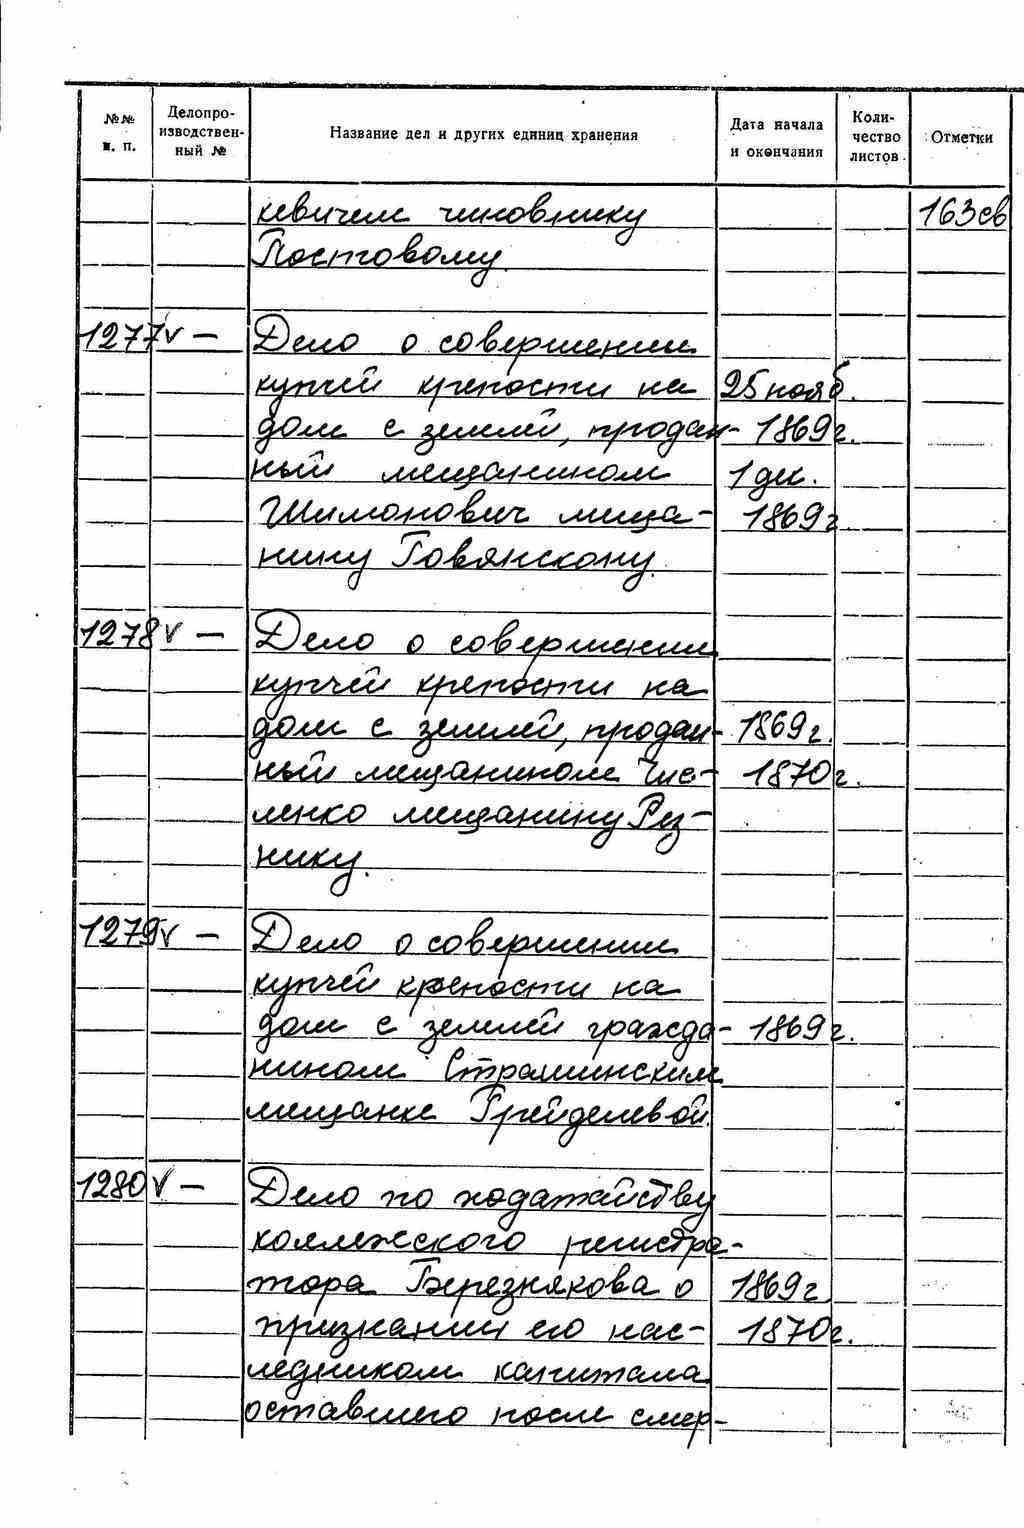 №№ п. п. Делопроизводственный № Название дел и других единиц хранения Дата начала и окончания Количество листов Отметки
кевичем чиновнику 163 св
Постовому.
1277 v — Дело о совершении
купчей крепости на 25 нояб.
дом с землей, продан- 1869 г.
ный мещанином 1 дек.
Шимонович меща- 1869 г.
нину Говянскому.
1278 v — Дело о совершении
купчей крепости на
дом с землей, продан- 1869 г.
ный мещанином Чис- 1870 г.
ленко мещанину Рез-
нику.
1279 v — Дело о совершении
купчей крепости на
дом с землей гражда- 1869 г.
нином Страшинским
мещанке Грейделевой.
1280 v — Дело по ходатайству
коллежского регистра-
тора Березнякова о 1869 г.
признании его нас- 1870 г.
ледником капитала
оставшего после смер-